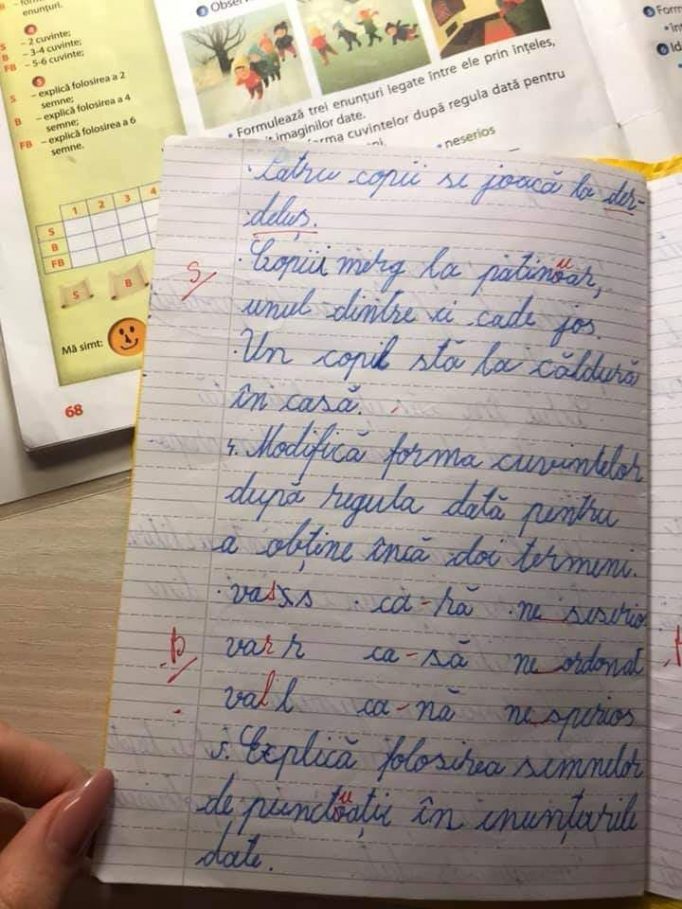 enunțuri.
S – 2 cuvinte;
B – 3-4 cuvinte;
FB – 5-6 cuvinte;
S – explică folosirea a 2
semne;
B – explică folosirea a 4
semne;
FB – explică folosirea a 6
semne.
1 2 3 4
S
B
FB
S B
Mă simt:
68
• Formulează trei enunțuri legate între ele prin înțeles,
imaginilor date.
rma cuvintelor după regula dată pentru
• neserios
Form
Patru copii se joacă la der-
deluș.
Copiii merg la patinoar,
S
unul dintre ei cade jos.
Un copil stă la căldură
în casă.
4. Modifică forma cuvintelor
după regula dată pentru
a obține încă doi termeni.
vas s s ca-ră ne seserios
var r ca-să ne ordonat
val l ca-nă ne sperios
5. Explică folosirea semnelor
de punctuații în enunțurile
date.